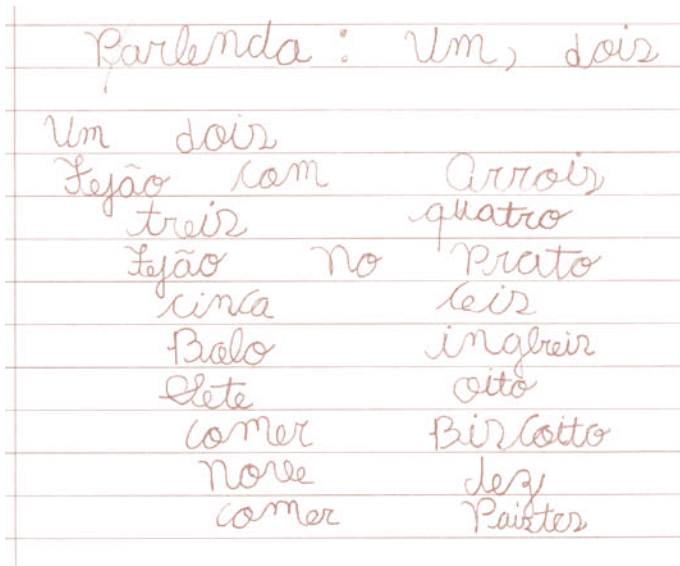 Parlenda: Um, dois
Um dois
Fejão com Arrois
treis quatro
Fejão no Prato
cinca ceis
Balo ingleis
Sete oito
comer Biscoito
nove dez
comer Paistes